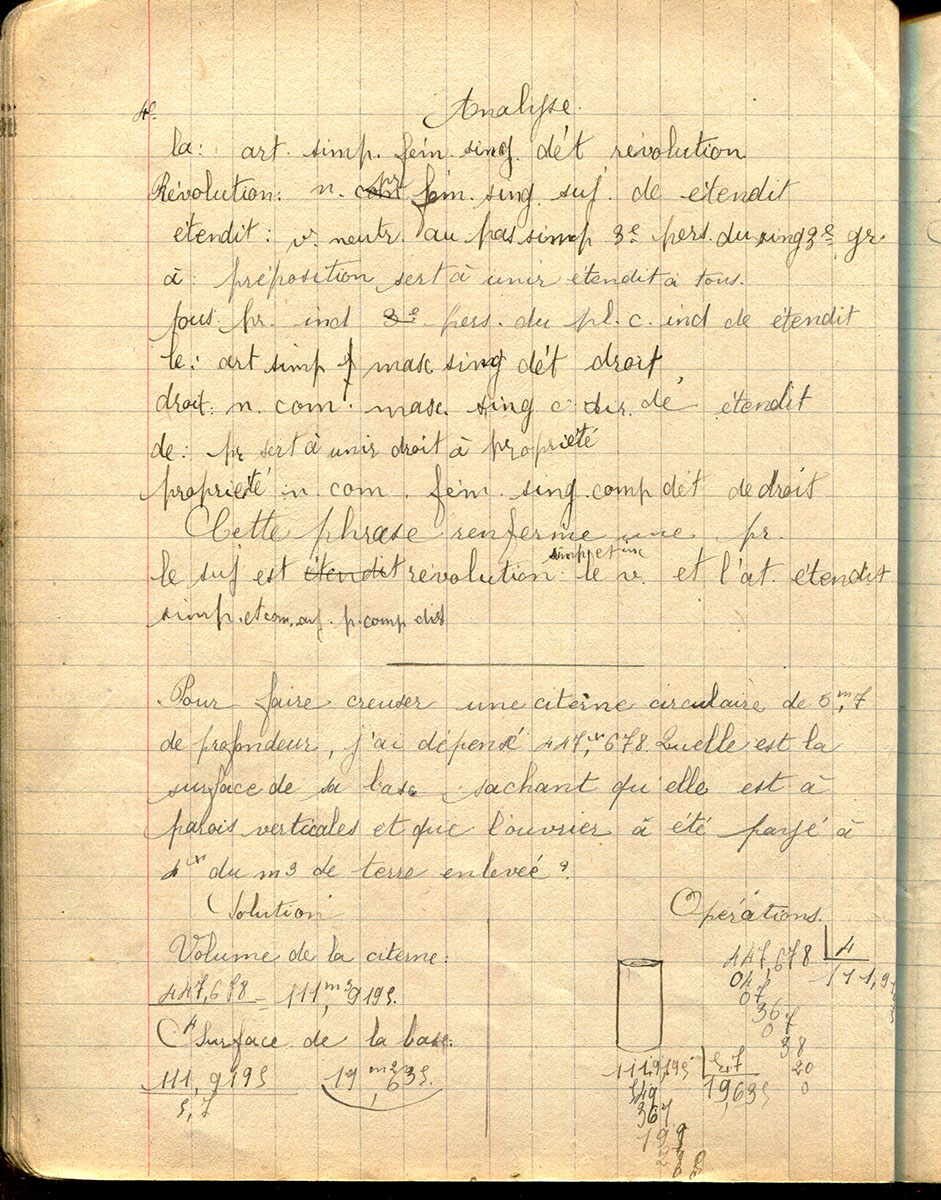 4e. Analyse.
la: art. simp. fém. sing. dét révolution
Révolution: n. com pr fém. sing. suj. de étendit
étendit: v. neutr. au pas simp 3e pers. du sing 3e gr
à: préposition sert à unir étendit à tous.
tous: pr. ind 3e pers. du pl. c. ind de étendit
le: art simp f masc sing dét droit
droit: n. com. masc. sing c. dir. de étendit
de: pr sert à unir droit à propriété
propriété n. com. fém. sing. comp dét de droit
Cette phrase renferme une pr.
simp et inc
le suj est étendit révolution: le v. et l'at. étendit
simp. et com. p. comp dir
Pour faire creuser une citerne circulaire de 5m,7
de profondeur, j'ai dépensé 447,fr 678. Quelle est la
surface de sa base sachant qu'elle est à
parois verticales et que l'ouvrier à été payé à
4fr du m3 de terre enlevée?
Solution
Opérations.
Volume de la citerne:
447,678 = 111,m3 9195.
4
Surface de la base:
111,9195 19,m2 635.
5,7
447,678 4
04 111,9
07
36
07
38
20
0
111,9195 5,7
549 19,635
367
199
28